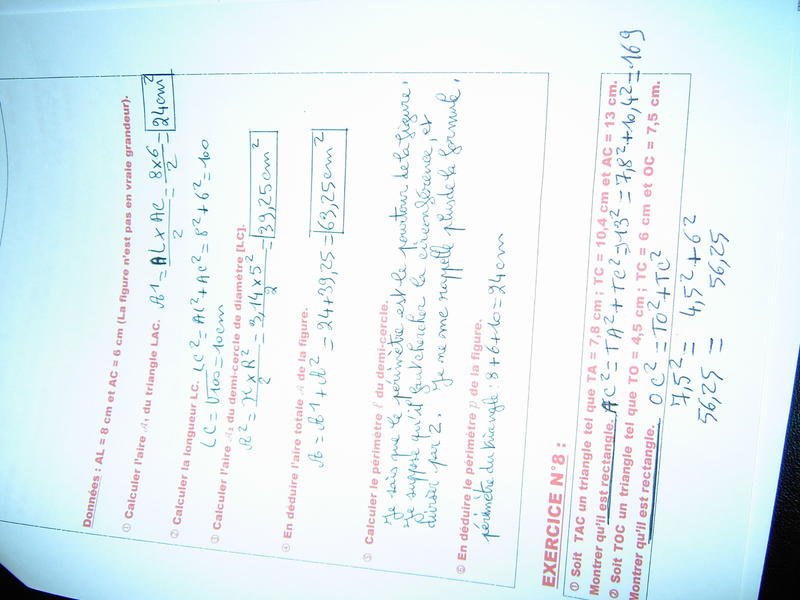 Données : AL = 8 cm et AC = 6 cm (La figure n'est pas en vraie grandeur).
① Calculer l'aire A1 du triangle LAC. A1 = AL x AC / 2 = 8x6 / 2 = 24cm²
② Calculer la longueur LC. LC² = AL² + AC² = 8² + 6² = 100
LC = √100 = 10cm
③ Calculer l'aire A2 du demi-cercle de diamètre [LC].
A² = π x R² / 2 = 3,14 x 5² / 2 = 39,25cm²
④ En déduire l'aire totale A de la figure.
A = A1 + A² = 24 + 39,25 = 63,25cm²
⑤ Calculer le périmètre ℓ du demi-cercle.
Je sais que le périmètre est le pourtour de la figure,
Je suppose qu'il faut chercher la circonférence, et
diviser par 2. Je ne me rappelle plus de la formule,
⑥ En déduire le périmètre p de la figure.
périmètre du triangle : 8 + 6 + 10 = 24cm
EXERCICE N°8 :
① Soit TAC un triangle tel que TA = 7,8 cm ; TC = 10,4 cm et AC = 13 cm.
Montrer qu'il est rectangle. AC² = TA² + TC² = 13² = 7,8² + 10,4² = 169
② Soit TOC un triangle tel que TO = 4,5 cm ; TC = 6 cm et OC = 7,5 cm.
Montrer qu'il est rectangle. OC² = TO² + TC²
7,5² = 4,5² + 6²
56,25 = 56,25